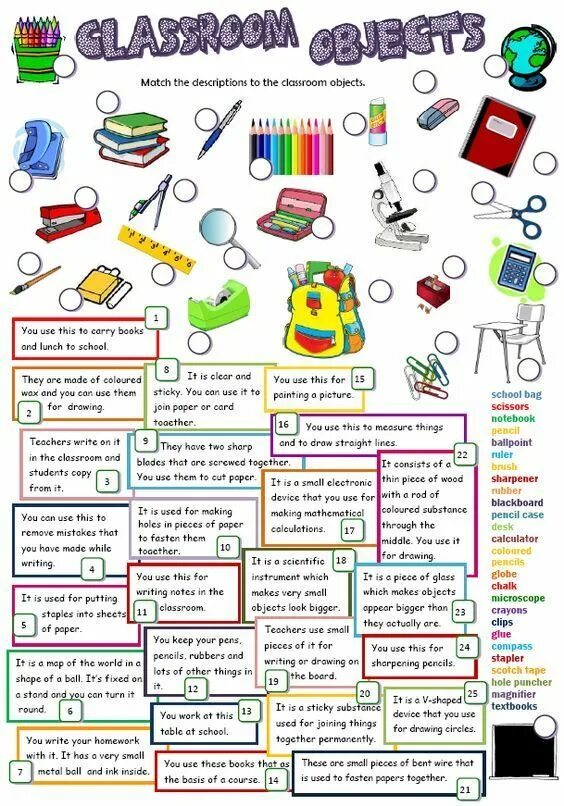 CLASSROOM OBJECTS
Match the descriptions to the classroom objects.
1
You use this to carry books
and lunch to school.
They are made of coloured
wax and you can use them
for drawing.
2
8
It is clear and
sticky. You can use it to
join paper or card
together.
You use this for
painting a picture.
15
Teachers write on it
in the classroom and
students copy
from it.
3
9
They have two sharp
blades that are screwed together.
You use them to cut paper.
16
You use this to measure things
and to draw straight lines.
22
It consists of a
thin piece of wood
with a rod of
coloured substance
through the
middle. You use it
for drawing.
You can use this to
remove mistakes that
you have made while
writing.
4
It is used for making
holes in pieces of paper
to fasten them
together.
10
It is a small electronic
device that you use for
making mathematical
calculations.
17
It is used for putting
staples into sheets
of paper.
5
You use this for
writing notes in the
classroom.
11
18
It is a scientific
instrument which
makes very small
objects look bigger.
It is a piece of glass
which makes objects
appear bigger than
they actually are.
23
It is a map of the world in a
shape of a ball. It's fixed on
a stand and you can turn it
round.
6
You keep your pens,
pencils, rubbers and
lots of other things in
it.
12
Teachers use small
pieces of it for
writing or drawing on
the board.
19
You use this for
sharpening pencils.
24
You write your homework
with it. It has a very small
metal ball and ink inside.
7
You work at this
table at school.
13
20
It is a sticky substance
used for joining things
together permanently.
25
It is a V-shaped
device that you use
for drawing circles.
You use these books that as
the basis of a course.
14
These are small pieces of bent wire that
is used to fasten papers together.
21
school bag
scissors
notebook
pencil
ballpoint
ruler
brush
sharpener
rubber
blackboard
pencil case
desk
calculator
coloured
pencils
globe
chalk
microscope
crayons
clips
glue
compass
stapler
scotch tape
hole puncher
magnifier
textbooks